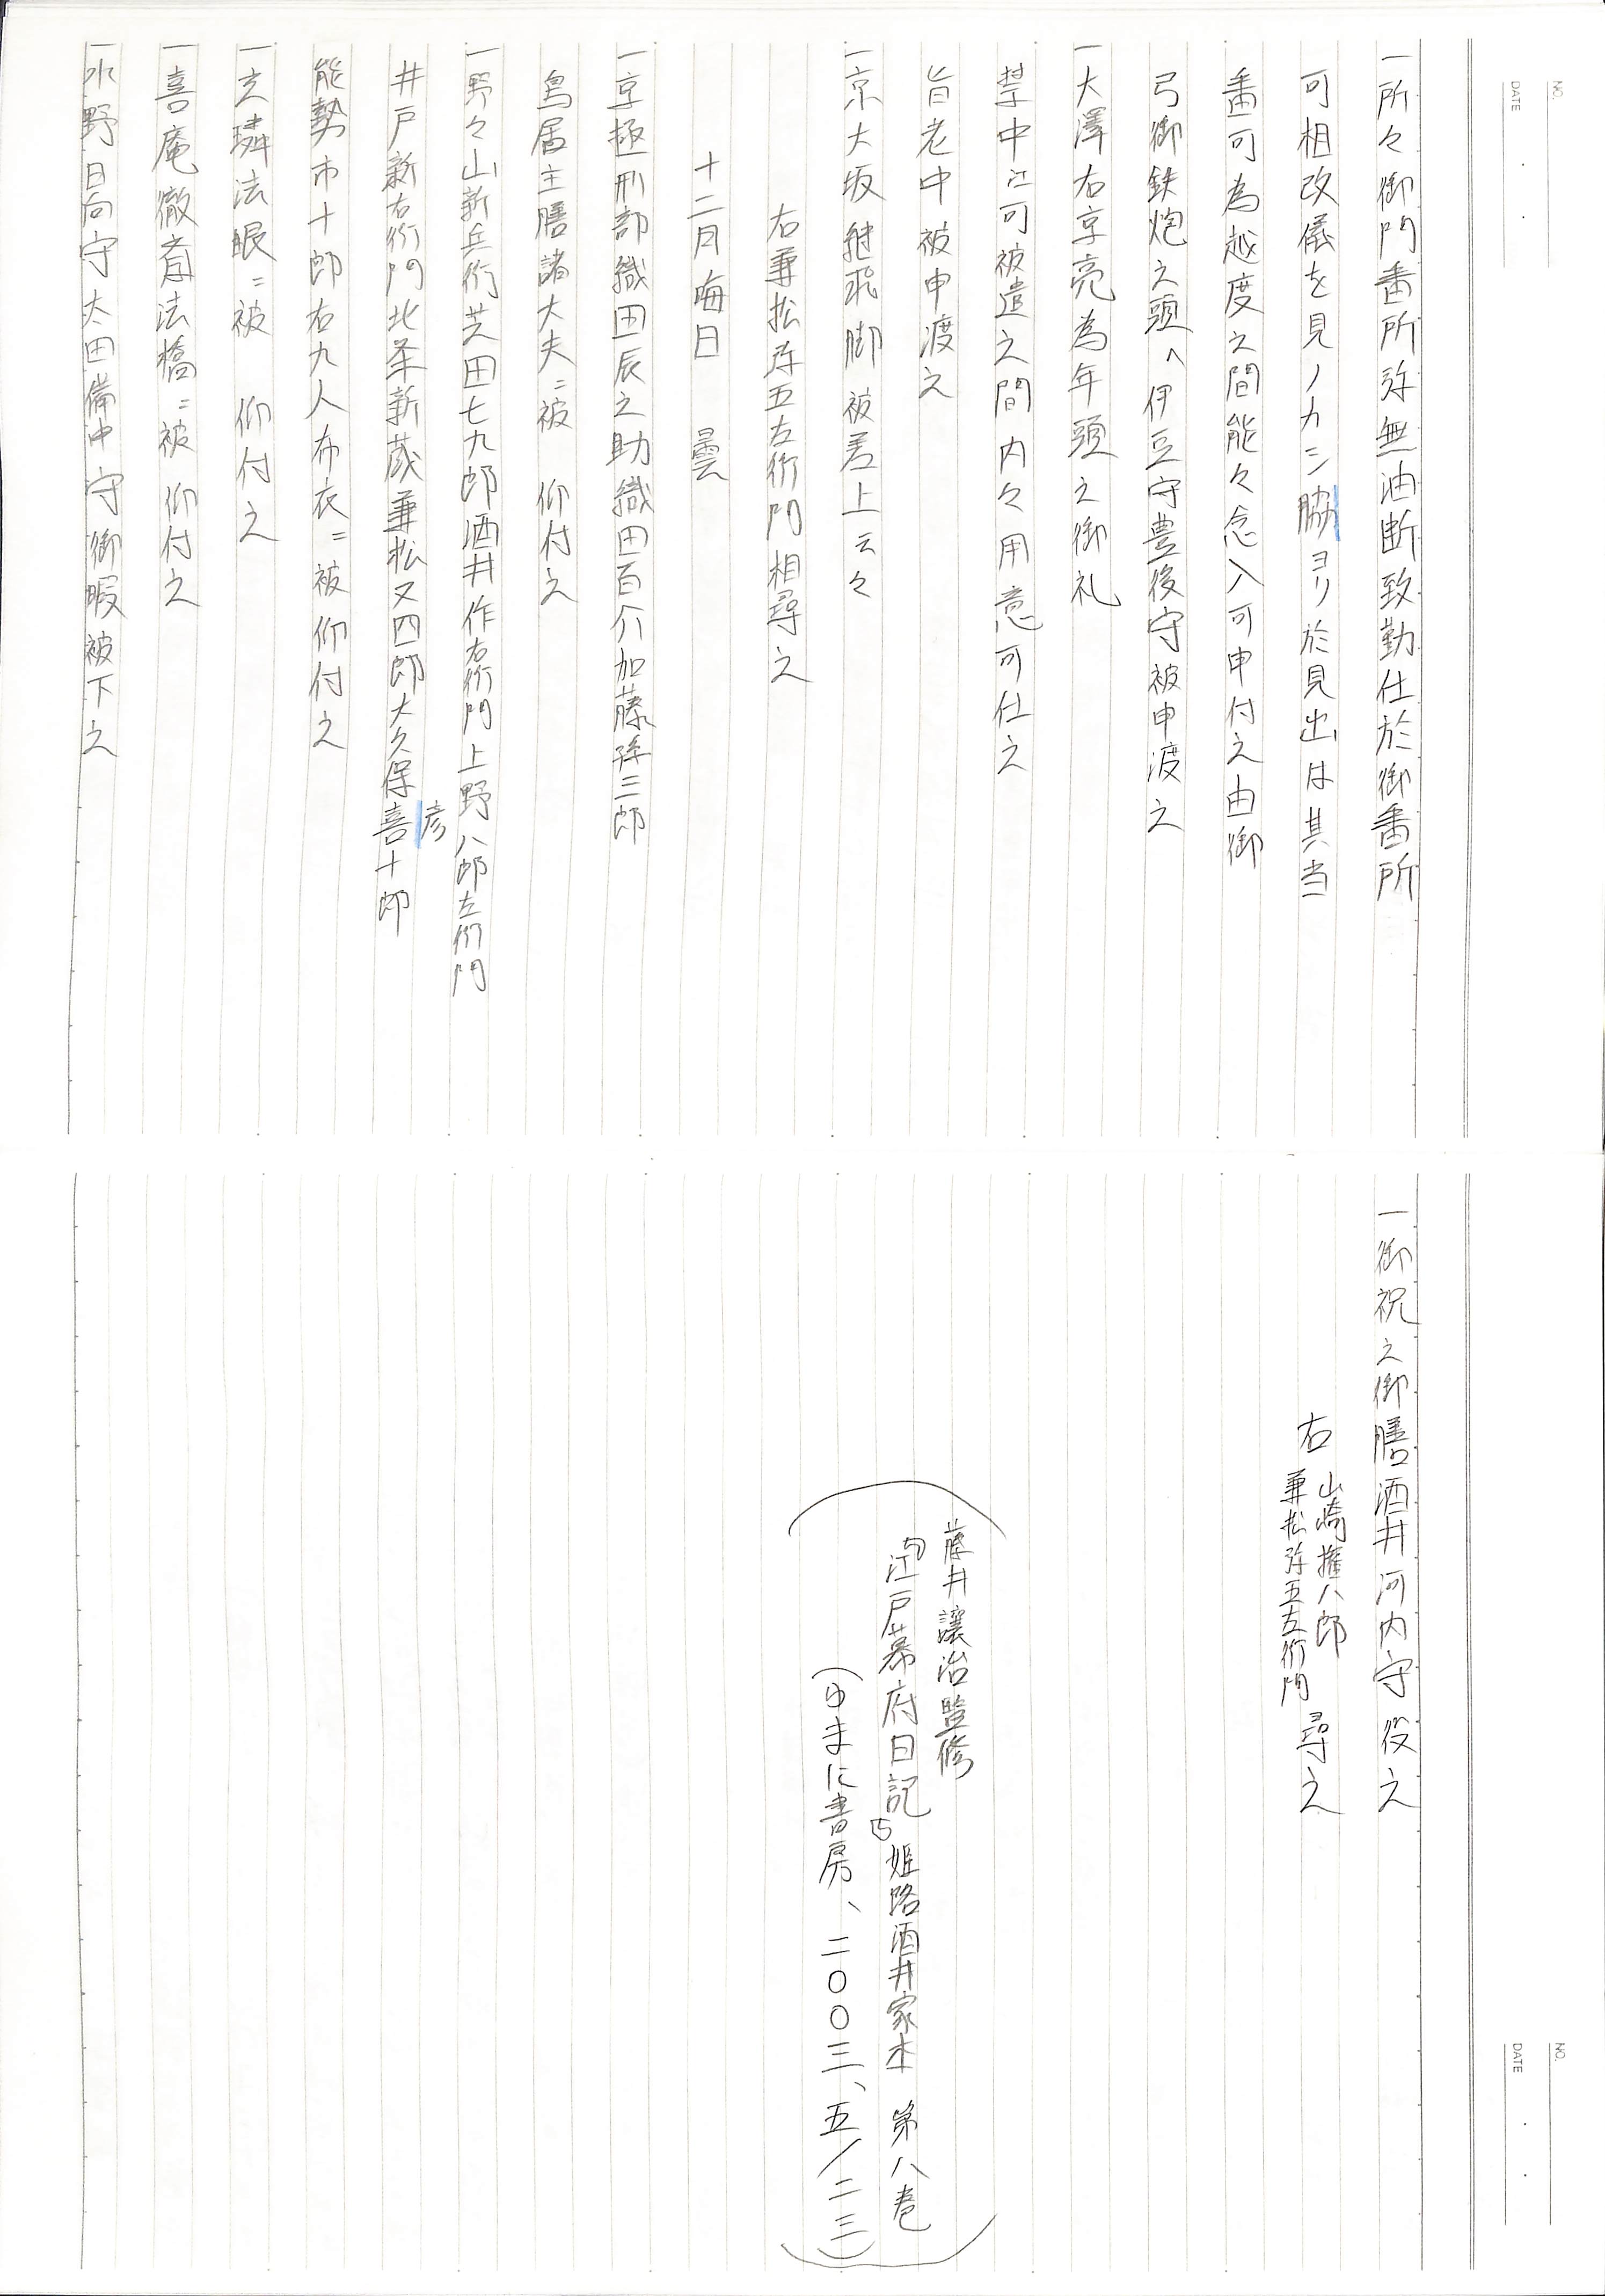 NO.
DATE
一所々御門番所弥無油断致勤仕於御番所
可相改儀を見ノカシ脇ヨリ於見出は其当
番可為越度之間能々念入可申付之由御
弓御鉄炮之頭へ伊豆守豊後守被申渡之
一大澤右京亮為年頭之御礼
禁中江可被遣之間内々用意可仕之
旨老中被申渡之
一京大坂継飛脚被差上云々
右兼松弥五左衛門相尋之
十二月晦日 曇
一京極刑部織田辰之助織田百介加藤孫三郎
鳥居主膳諸大夫ニ被 仰付之
一野々山新兵衛芝田七九郎酒井作右衛門上野八郎左衛門
井戸新右衛門北条新蔵兼松又四郎大久保喜十郎
彦
能勢市十郎右九人布衣ニ被仰付之
一玄璘法眼ニ被 仰付之
一喜庵徹斎法橋ニ被 仰付之
一水野日向守太田備中守御暇被下之
NO.
DATE
一御祝之御膳酒井河内守役之
右 山崎権八郎
兼松弥五左衛門 尋之
藤井讓治監修
『江戸幕府日記』姫路酒井家本 第八巻
(ゆまに書房、二〇〇三、五/二三)